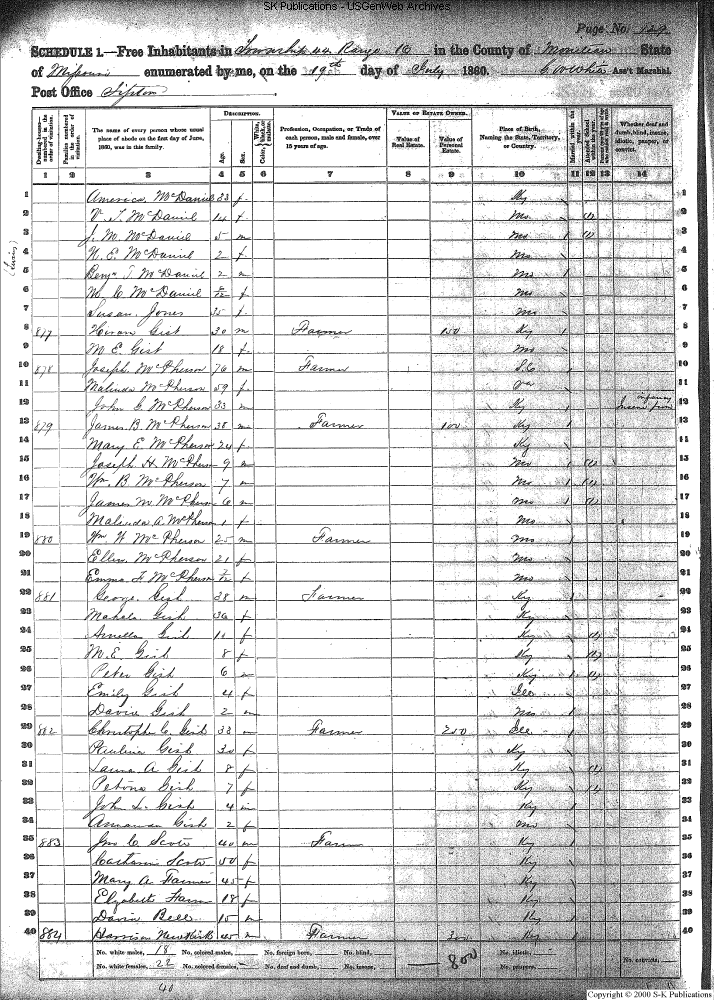 SK Publications - USGenWeb Archives
Page No. 129
SCHEDULE 1.—Free Inhabitants in Township 44 Range 16 in the County of Moniteau State
of Missouri enumerated by me, on the 19th day of July 1860. Ass't Marshal.
Post Office Tipton
DESCRIPTION. VALUE OF ESTATE OWNED.
The name of every person whose usual place of abode on the first day of June, 1860, was in this family.
Age. Sex.
Profession, Occupation, or Trade of each person, male and female, over 15 years of age.
Value of Real Estate. Value of Personal Estate.
Place of Birth, Naming the State, Territory, or Country.
Whether deaf and dumb, blind, insane, idiotic, pauper, or convict.
1 2 3 4 5 6 7 8 9 10 11 12 13 14
1 America McDaniel 33 f Ky 1
2 V. J. McDaniel 14 f Mo (1) 2
3 J. M. McDaniel 5 m Mo (1) 3
4 N. E. McDaniel 2 f Mo 4
5 Benj. T. McDaniel 2 m Mo 5
6 M. C. McDaniel f Mo 6
7 Susan Jones 35 f Mo 7
8 877 Hiram Gist 30 m Farmer 150 Ky 8
9 M E. Gist 18 f Mo 9
10 878 Joseph McPherson 76 m Farmer S.C 10
11 Malinda McPherson 59 f Va 11
12 John G. McPherson 33 m Ky Insane from infancy 12
13 879 James B. McPherson 38 m Farmer 100 Ky 13
14 Mary E. McPherson 24 f Ky 14
15 Joseph H. McPherson 9 m Mo (1) 15
16 Wm. B. McPherson 7 m Mo (1) 16
17 James M McPherson 6 m Mo (1) 17
18 Malinda A. McPherson 1 f Mo 18
19 880 Wm H McPherson 25 m Farmer Mo 19
20 Ellen McPherson 21 f Mo 20
21 Emma F. McPherson f Mo 21
22 881 George Gish 38 m Farmer Ky 22
23 Mahala Gish 36 f Ky 23
24 Gish 11 f Ky (1) 24
25 M. E. Gish 8 f Ky (1) 25
26 Peter Gish 6 m Ky (1) 26
27 Emily Gish 4 f Ill 27
28 David Gish 2 m Mo 28
29 882 Christopher C. Gish 33 m Farmer 200 Ill 29
30 Gish 30 f Ky 30
31 Laura A Gish 8 f Ky (1) 31
32 Gish 7 f Ky (1) 32
33 John L. Gish 4 m Ky 33
34 Gish 2 f Mo 34
35 883 Jno C Scott 40 m Farmer Ky 35
36 Scott 50 f Ky 36
37 Mary A. Farmer 45 f Ky 37
38 Elizabeth Farm 18 f Ky 38
39 David Bell 15 m Ky 39
40 884 Harrison Newkirk 45 m Farmer 300 Ky 40
No. white males, 18 No. colored males, No. foreign born, No. blind, 800 No. idiotic, No. convicts,
No. white females, 22 No. colored females, No. deaf and dumb, No. insane, No. paupers,
40
Copyright © 2000 S-K Publications